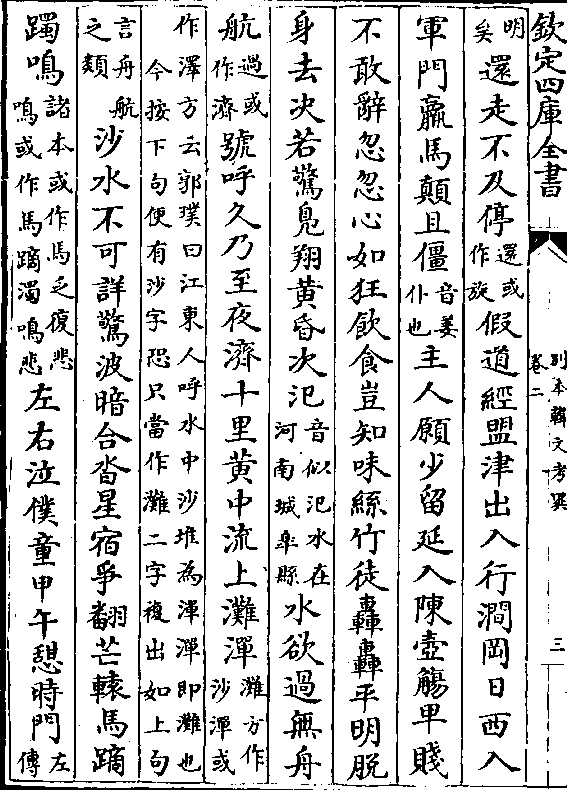 欽定四庫全書
別本韓文考異
卷二
三
明矣還走不及停還或作旋假道經盟津出入行澗岡日西入
軍門羸馬顛且僵音姜仆也主人願少留延入陳壺觴卑賤
不敢辭忽忽心如狂飲食豈知味絲竹徒轟轟平明脫
身去決若驚鳧翔黄昏次汜音似汜水在河南城臯縣水欲過無舟
航過或作濟號呼久乃至夜濟十里黄中流上灘潬灘方作沙潬或
作澤方云郭璞曰江東人呼水中沙堆為潬潬即灘也
今按下句便有沙字恐只當作灘二字複出如上句
言舟航之類沙水不可詳驚波暗合沓星宿爭翻芒轅馬蹢
躅鳴諸本或作馬乏復悲鳴或作馬蹢濁鳴悲左右泣僕童甲午憩時門左傳